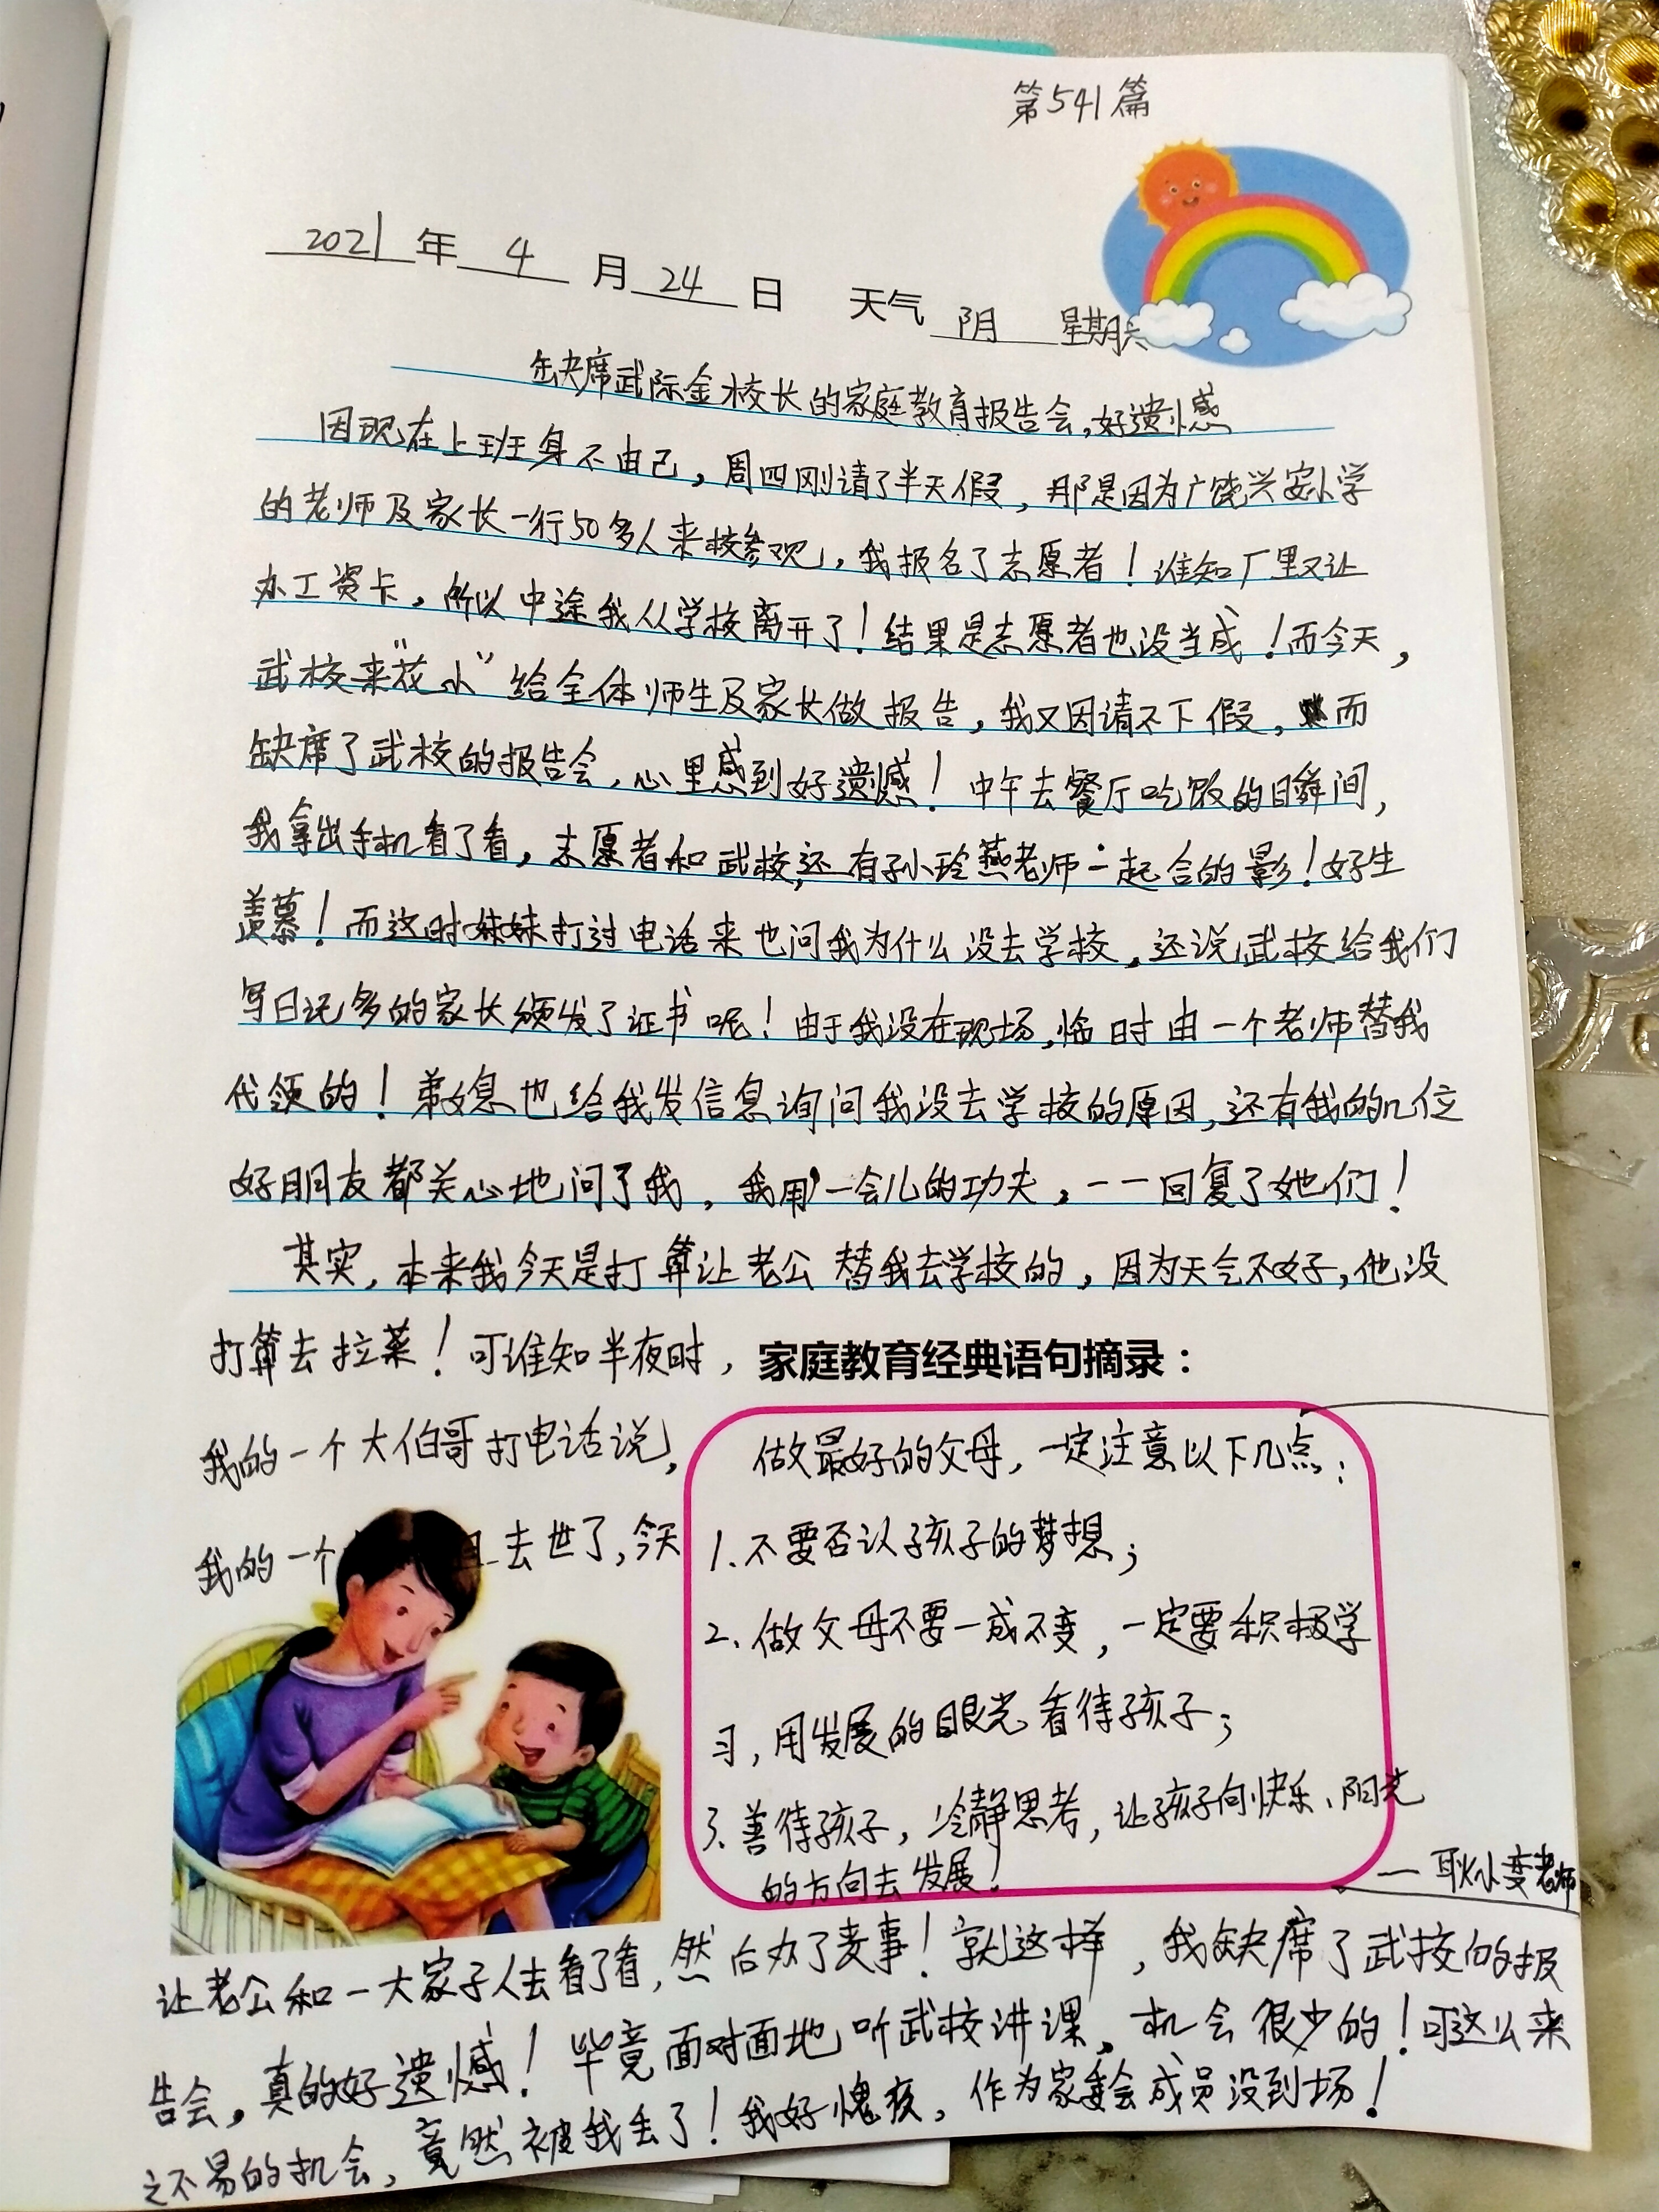 第541篇
2021年4月24日 天气 阴 星期六
缺席武际金校长的家庭教育报告会,好遗憾
因现在上班身不由己,周四刚请了半天假,那是因为广饶兴安小学
的老师及家长一行50多人来校参观,我报名了志愿者!谁知厂里又让
办工资卡,所以中途我从学校离开了!结果是志愿者也没当成!而今天,
武校来“花小”给全体师生及家长做报告,我又因请不下假,而
缺席了武校的报告会,心里感到好遗憾!中午去餐厅吃饭的瞬间,
我拿出手机看了看,志愿者和武校,还有孙小玲燕老师一起合的影!好生
羡慕!而这时妹妹打过电话来也问我为什么没去学校,还说武校给我们
写日记多的家长颁发了证书呢!由于我没在现场,临时由一个老师替我
代领的!弟媳也给我发信息询问我没去学校的原因,还有我的几位
好朋友都关心地问了我,我用一会儿的功夫,一一回复了她们!
其实,本来我今天是打算让老公替我去学校的,因为天气不好,他没
打算去拉菜!可谁知半夜时,
我的一个大伯哥打电话说,
我的一个 去世了,今天
家庭教育经典语句摘录:
做最好的父母,一定注意以下几点:
1.不要否认孩子的梦想;
2.做父母不要一成不变,一定要积极学
习,用发展的眼光看待孩子;
3.善待孩子,冷静思考,让孩子向快乐、阳光
的方向去发展!
——耿小变老师
让老公和一大家子人去看了看,然后办了丧事!就这样,我缺席了武校的报
告会,真的好遗憾!毕竟面对面地听武校讲课,机会很少的!可这么来
之不易的机会,竟然被我丢了!我好愧疚,作为家委会成员没到场!